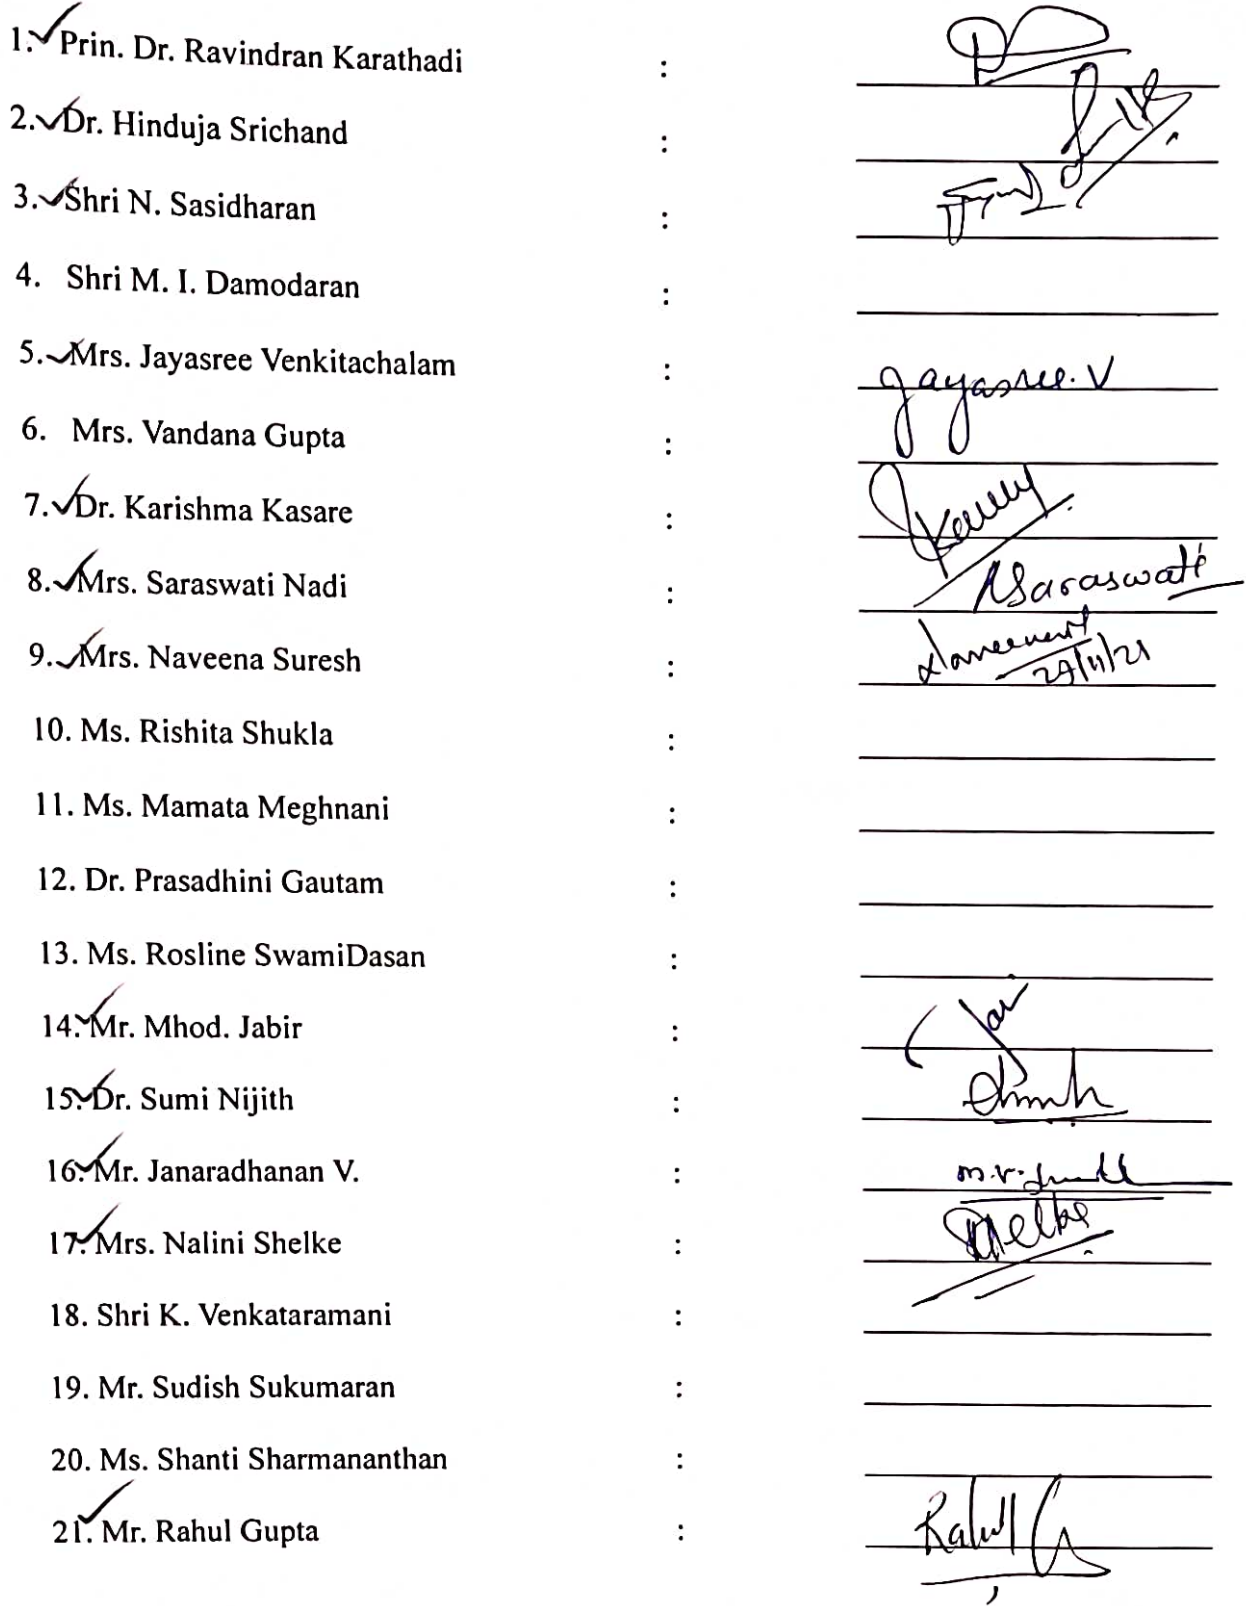 1. Prin. Dr. Ravindran Karathadi :
2. Dr. Hinduja Srichand :
3. Shri N. Sasidharan :
4. Shri M. I. Damodaran :
5. Mrs. Jayasree Venkitachalam : Jayasree. V
6. Mrs. Vandana Gupta :
7. Dr. Karishma Kasare :
8. Mrs. Saraswati Nadi : Saraswati
9. Mrs. Naveena Suresh : 29/11/21
10. Ms. Rishita Shukla :
11. Ms. Mamata Meghnani :
12. Dr. Prasadhini Gautam :
13. Ms. Rosline SwamiDasan :
14. Mr. Mhod. Jabir :
15. Dr. Sumi Nijith :
16. Mr. Janaradhanan V. :
17. Mrs. Nalini Shelke : Shelke
18. Shri K. Venkataramani :
19. Mr. Sudish Sukumaran :
20. Ms. Shanti Sharmananthan :
21. Mr. Rahul Gupta : Rahul G